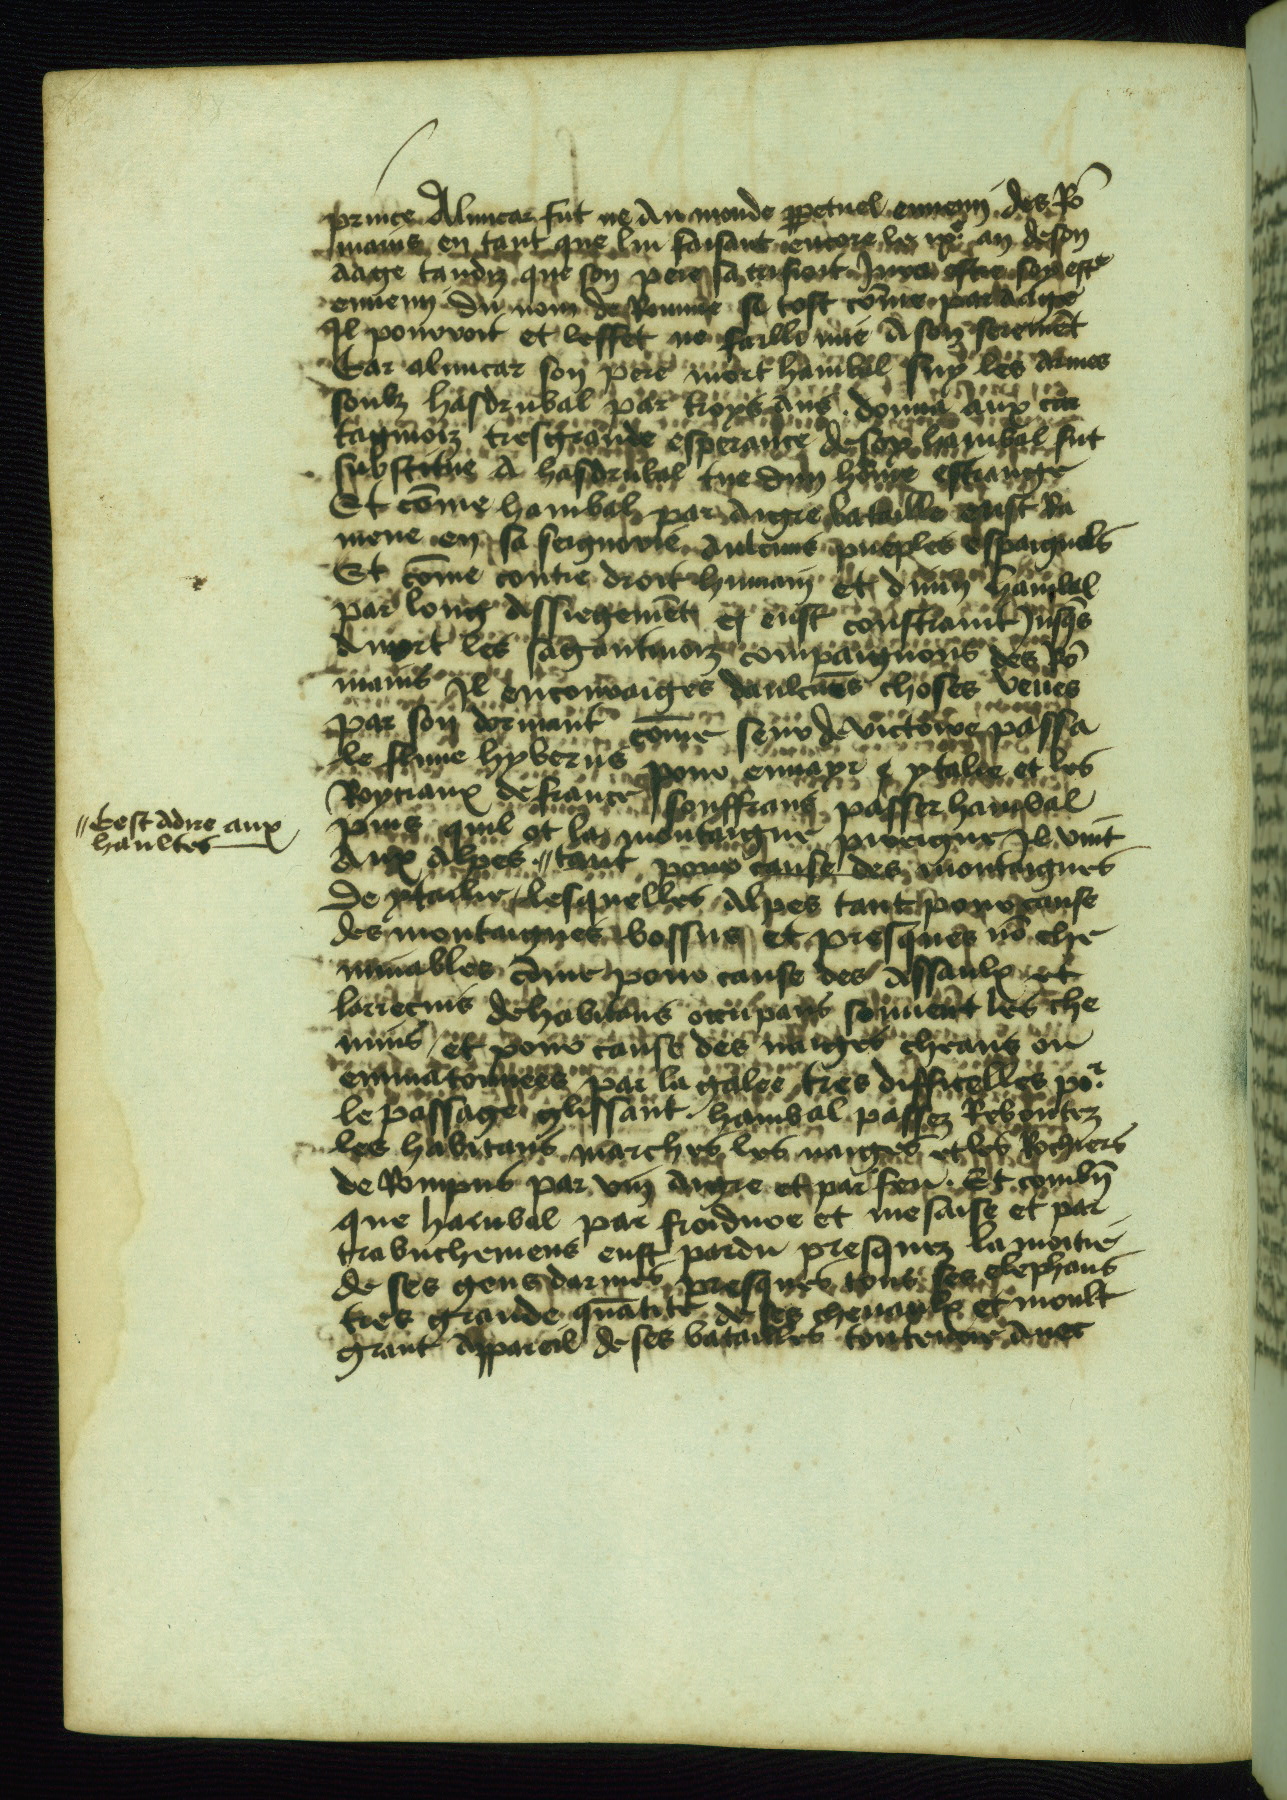 prince Almicar fut ne au monde ꝑpetuel ennemy des Rō
mains en tant que lui faisant encore le ixe an de son
aage tandiz que son pere sacrifioit Jura estre soy estre
ennemy du nom de Romme si tost cōme par aage
Il pourroit et leffet ne failli mie a son seremēt
Car almicar son pere mort hanibal suy les armes
soubz hasdrubal par troys ans . donna aux car
taginoiz tresgrande esperance de soy hanibal fut
substitue a hasdrubal tue dun hōme estrange
Et cōme hanibal par aigre bataille eust Ra
mene en sa seignorie aucuns pueples espaignols
Et cōme contre droit humain et diuin hanibal
par long assiegemēt et eust constraint Jusqs
a mort les sagontinoiz compaignons des Rō
mains Il encouraiges daulcūes choses veues
par son dormant cōme seur de victoire passa
le fluue hyberus pour enuayr ytalie et les
Roytiaux de france souffrans passer hanibal
puis quil ot la montaigne pireigne Il vint
Aux Alpes // tant pour cause des montaignes
// Cest adire aux
haultes
De ytalie lesquelles Alpes tant pour cause
des montaignes bossus et presques nō che
minables cōme pour cause des assaulx et
larrecins de habitans occupans souuent les che
mins / et pour cause des naiges cheans ou
enmatonnees par la galee tres difficelles por
le passage glissant . hanibal passez Reboutez
les habitans marches les naiges et les Rochiers
de Rompus par vin aigre et par feu . Et combn̄
que hanibal par froidure et mesaise et par
trabuchemens eust pardu presquez la moitie
de ses gens darmes presques tous ses elephans
tres grande quātite de ses cheuaulx et moult
grant appareil de ses batailles touteuoie auec